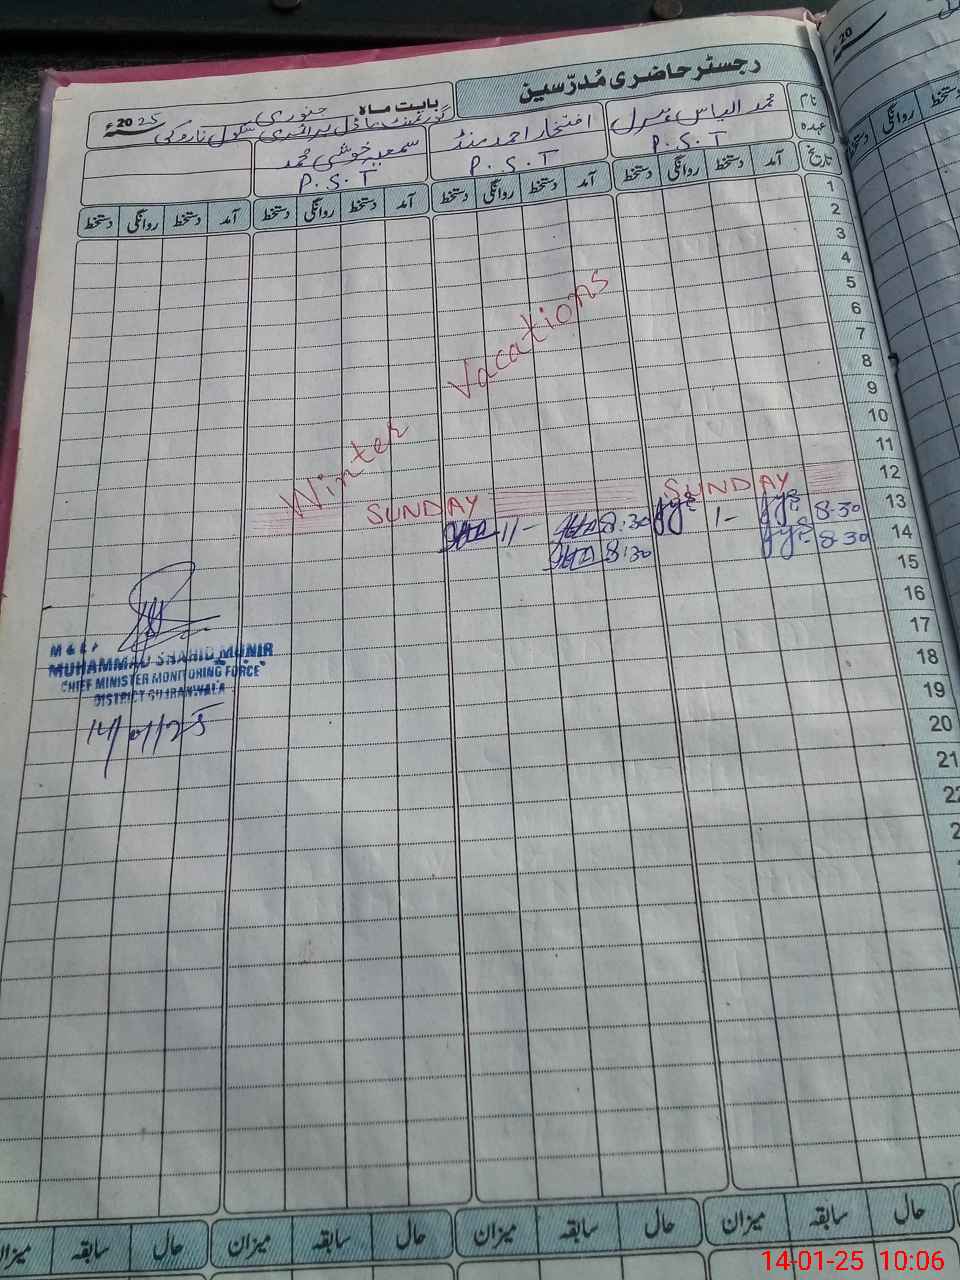 رجسٹر حاضری مُدرّسین
بابت ماہ جنوری 2025ء
گورنمنٹ ماڈل پرائمری سکول
نام محمد الیاس افتخار احمد سمعیہ خوشی محمد
عہدہ P.S.T P.S.T P.S.T
تاریخ آمد دستخط روانگی دستخط آمد دستخط روانگی دستخط آمد دستخط روانگی دستخط آمد دستخط روانگی دستخط
1
2
3
4
5
6
7
8
9
10
11
Winter Vacations
12 SUNDAY SUNDAY
13 8.30 1- 8:30 11-
14 8.30 8:30
15
16
17
18
19
20
21
22
MUHAMMAD SHAHID MUNIR
CHIEF MINISTER MONITORING FORCE
DISTRICT GUJRANWALA
14/01/25
حال سابقہ میزان حال سابقہ میزان حال سابقہ میزان حال سابقہ میزان
20ء
دستخط روانگی
14-01-25 10:06